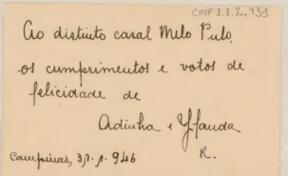 CMP 1.1.2.931
Ao distinto casal Melo Pulo,
os cumprimentos e votos de
felicidade de
Adinha e Yfauda
Campinas, 31-1-946
R.